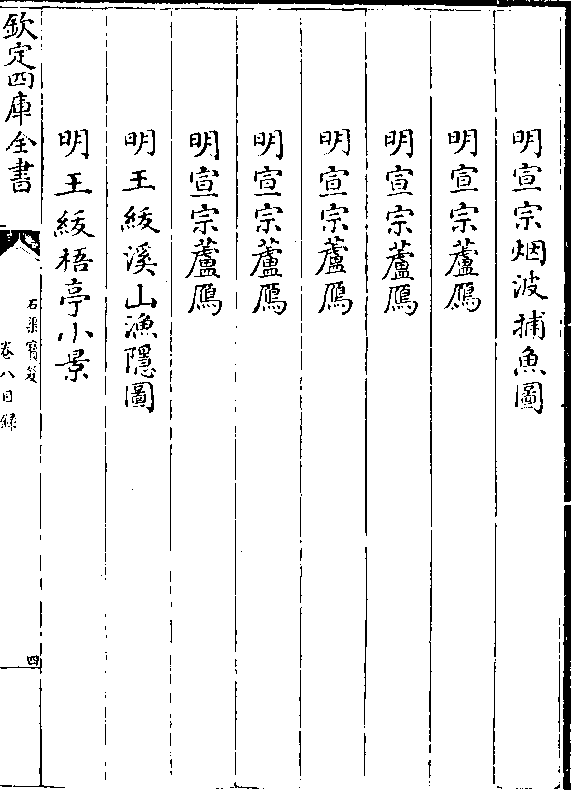 明宣宗烟波捕魚圖
明宣宗蘆鴈
明宣宗蘆鴈
明宣宗蘆鴈
明宣宗蘆鴈
明宣宗蘆鴈
明王紱溪山漁隱圖
明王紱梧亭小景
欽定四庫全書
石渠寶笈
卷八目録
四